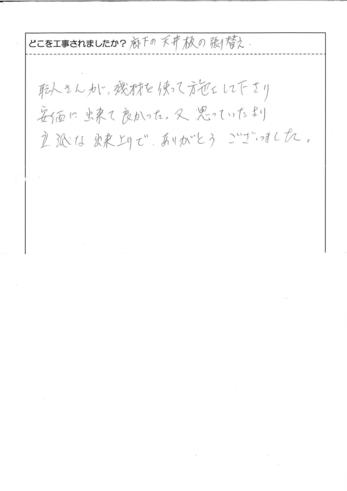 どこを工事されましたか？廊下の天井板の張り替え.
職人さんが、残材を使って施工して下さり
安価に出来て良かった。又思っていたより
立派な出来上りで、ありがとうございました。